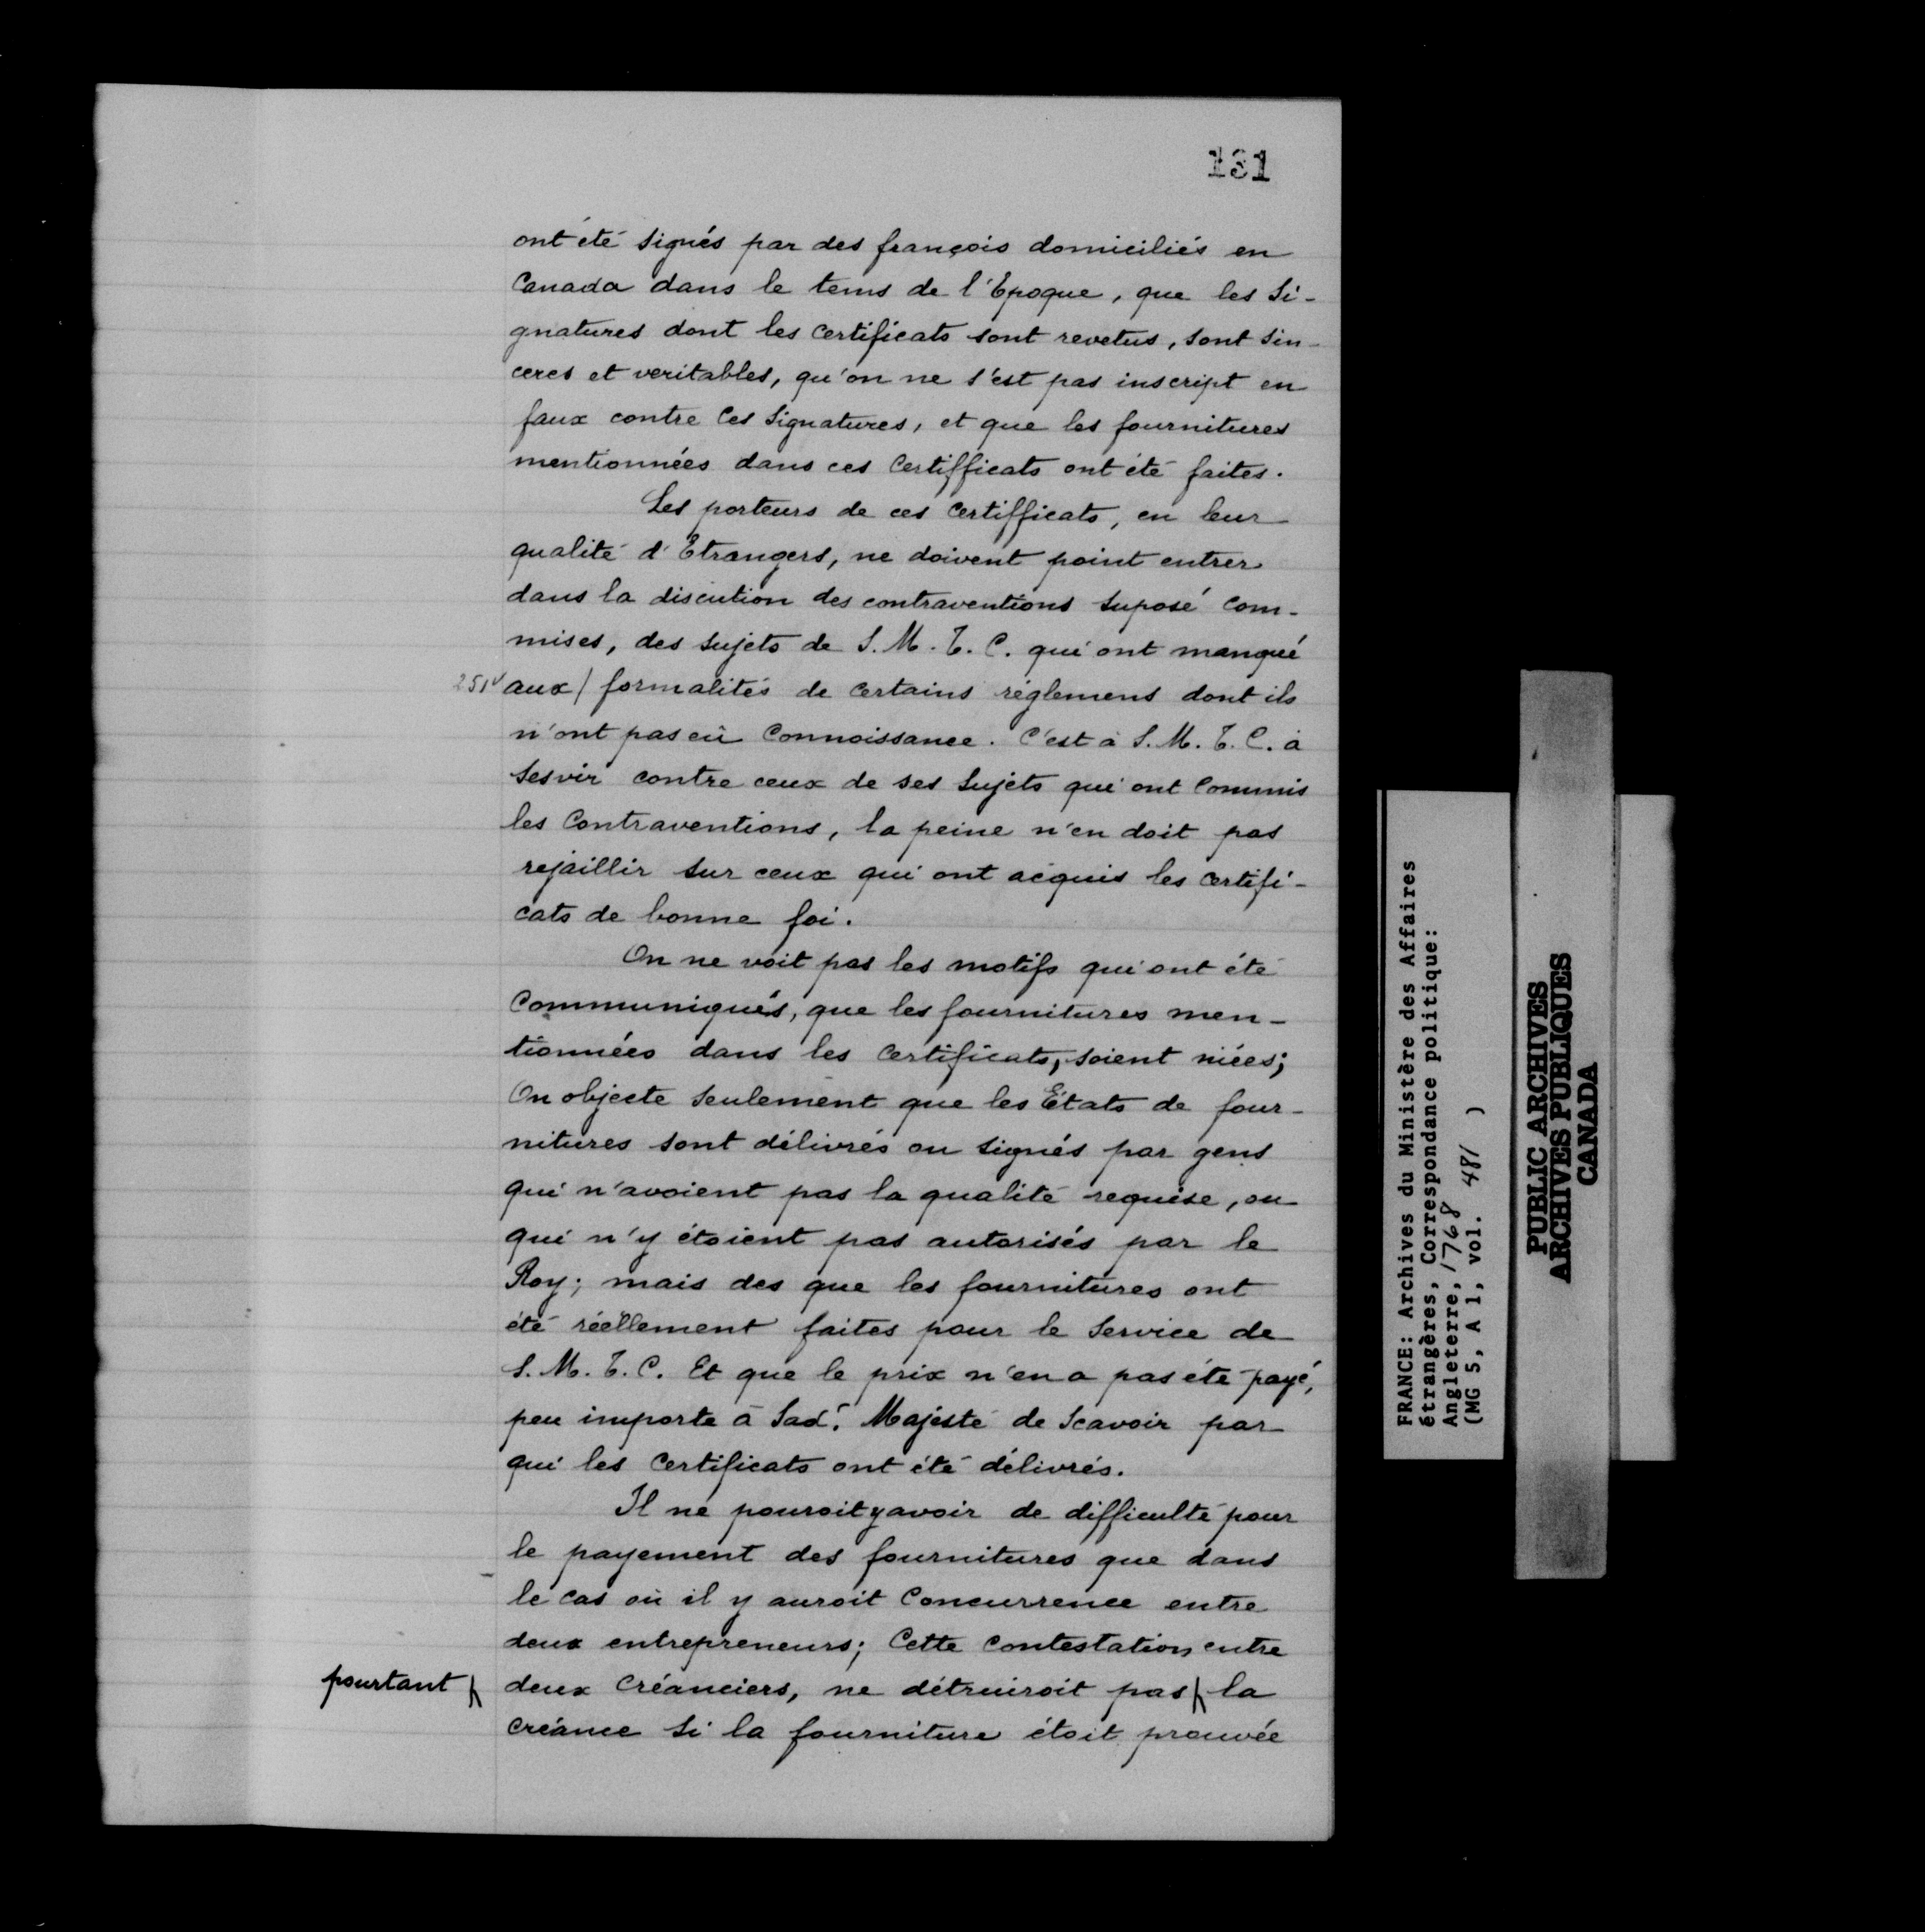 131
ont été signés par des françois domiciliés en
Canada dans le tems de l'Epoque, que les Si-
gnatures dont les Certificats sont revetus, sont sin-
ceres et veritables, qu'on ne s'est pas inscript en
faux contre Ces Signatures, et que les fournitures
mentionnées dans ces Certifficats ont été faites.
Les porteurs de ces Certifficats, en leur
qualité d'Etrangers, ne doivent point entrer
dans la discution des contraventions suposé com-
mises, des sujets de S. M. T. C. qui ont manqué
251v aux / formalités de Certains réglemens dont ils
n'ont pas eû Connoissance. C'est à S. M. T. C. à
sesvir contre ceux de ses Sujets qui ont Commis
les Contraventions, la peine n'en doit pas
rejaillir sur ceux qui ont acquis les Certifi-
cats de bonne foi.
On ne voit pas les motifs qui ont été
Communiqués, que les fournitures men-
tionnées dans les Certificats, soient niées;
On objecte Seulement que les Etats de four-
nitures sont délivrés ou signés par gens
qui n'avoient pas la qualité requise, ou
qui n'y étoient pas autorisés par le
Roy; mais des que les fournitures ont
été réellement faites pour le Service de
S. M. T. C. Et que le prix n'en a pas été payé,
peu importe à Sad. Majesté de Scavoir par
qui les Certificats ont été délivrés.
Il ne pouroit y avoir de difficulté pour
le payement des fournitures que dans
le cas où il y auroit Concurrence entre
deux entrepreneurs; Cette Contestation entre
pourtant deux Créanciers, ne détruiroit pas la
Créance Si la fourniture étoit prouvée
FRANCE: Archives du Ministère des Affaires
étrangères, Correspondance politique:
Angleterre, 1768
(MG 5, A 1, vol. 481 )
PUBLIC ARCHIVES
ARCHIVES PUBLIQUES
CANADA